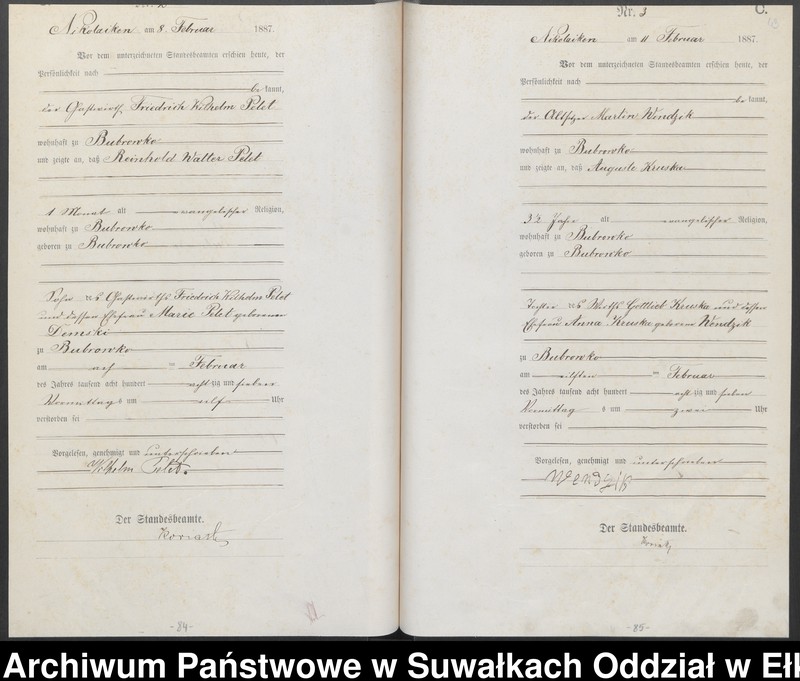 Nikolaiken am 8. Februar 1887.
Vor dem unterzeichneten Standesbeamten erschien heute, der
Persönlichkeit nach
be kannt,
der Gastwirth Friedrich Wilhelm Pelet
wohnhaft zu Bubrowko
und zeigte an, daß Reinhold Walter Pelet
1 Monat alt evangelischer Religion,
wohnhaft zu Bubrowko
geboren zu Bubrowko
Sohn des Gastwirths Friedrich Wilhelm Pelet
und dessen Ehefrau Marie Pelet geborenen
Demski
zu Bubrowko
am acht Februar
des Jahres tausend acht hundert acht zig und sieben
Vormittags um elf Uhr
verstorben sei
Vorgelesen, genehmigt und unterschrieben
Wilhelm Pelet.
Der Standesbeamte.
-84-
Nr. 3
C.
Nikolaiken am 11 Februar 1887.
Vor dem unterzeichneten Standesbeamten erschien heute, der
Persönlichkeit nach
be kannt,
der Altsitzer Martin Wendzik
wohnhaft zu Bubrowko
und zeigte an, daß Auguste Kruska
3½ Jahr alt evangelischer Religion,
wohnhaft zu Bubrowko
geboren zu Bubrowko
Tochter des Wirths Gottlieb Kruska und dessen
Ehefrau Anna Kruska geborene Wendzik
zu Bubrowko
am elften Februar
des Jahres tausend acht hundert acht zig und sieben
Vormittag s um zwei Uhr
verstorben sei
Vorgelesen, genehmigt und unterschrieben
Wendzik
Der Standesbeamte.
-85-
Archiwum Państwowe w Suwałkach Oddział w Ełk